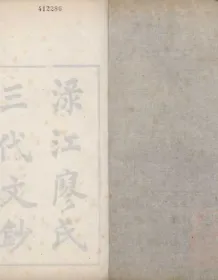 412286
渌江廖氏
三代文鈔